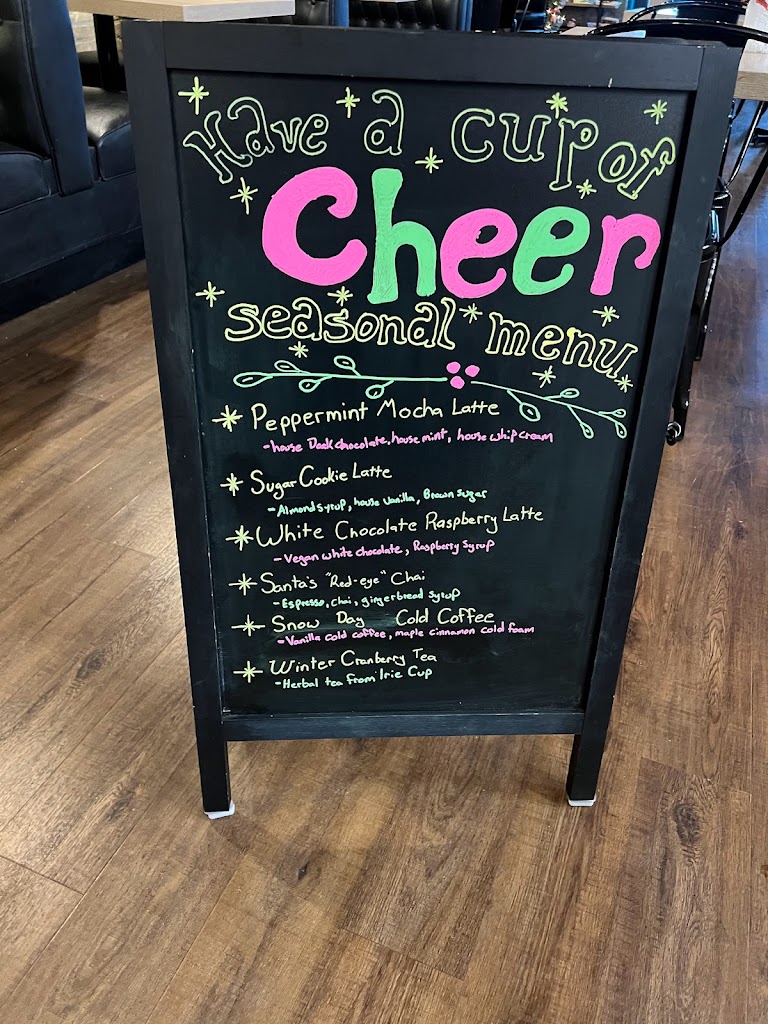 Have a cup of
Cheer
seasonal menu
Peppermint Mocha Latte
- house Dark chocolate, house mint, house whip cream
Sugar Cookie Latte
- Almond syrup, house vanilla, Brown sugar
White Chocolate Raspberry Latte
- Vegan white chocolate, Raspberry Syrup
Santa's "Red-eye" Chai
- Espresso, chai, gingerbread syrup
Snow Day Cold Coffee
- Vanilla cold coffee, maple cinnamon cold foam
Winter Cranberry Tea
- Herbal tea from Irie Cup